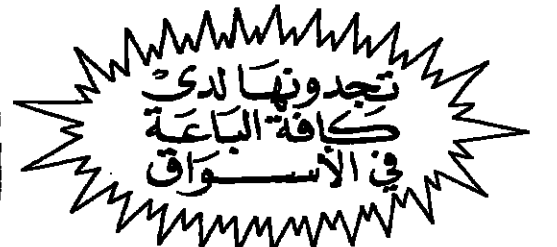 تجدونها لدى
كافة الباعة
في الأسواق